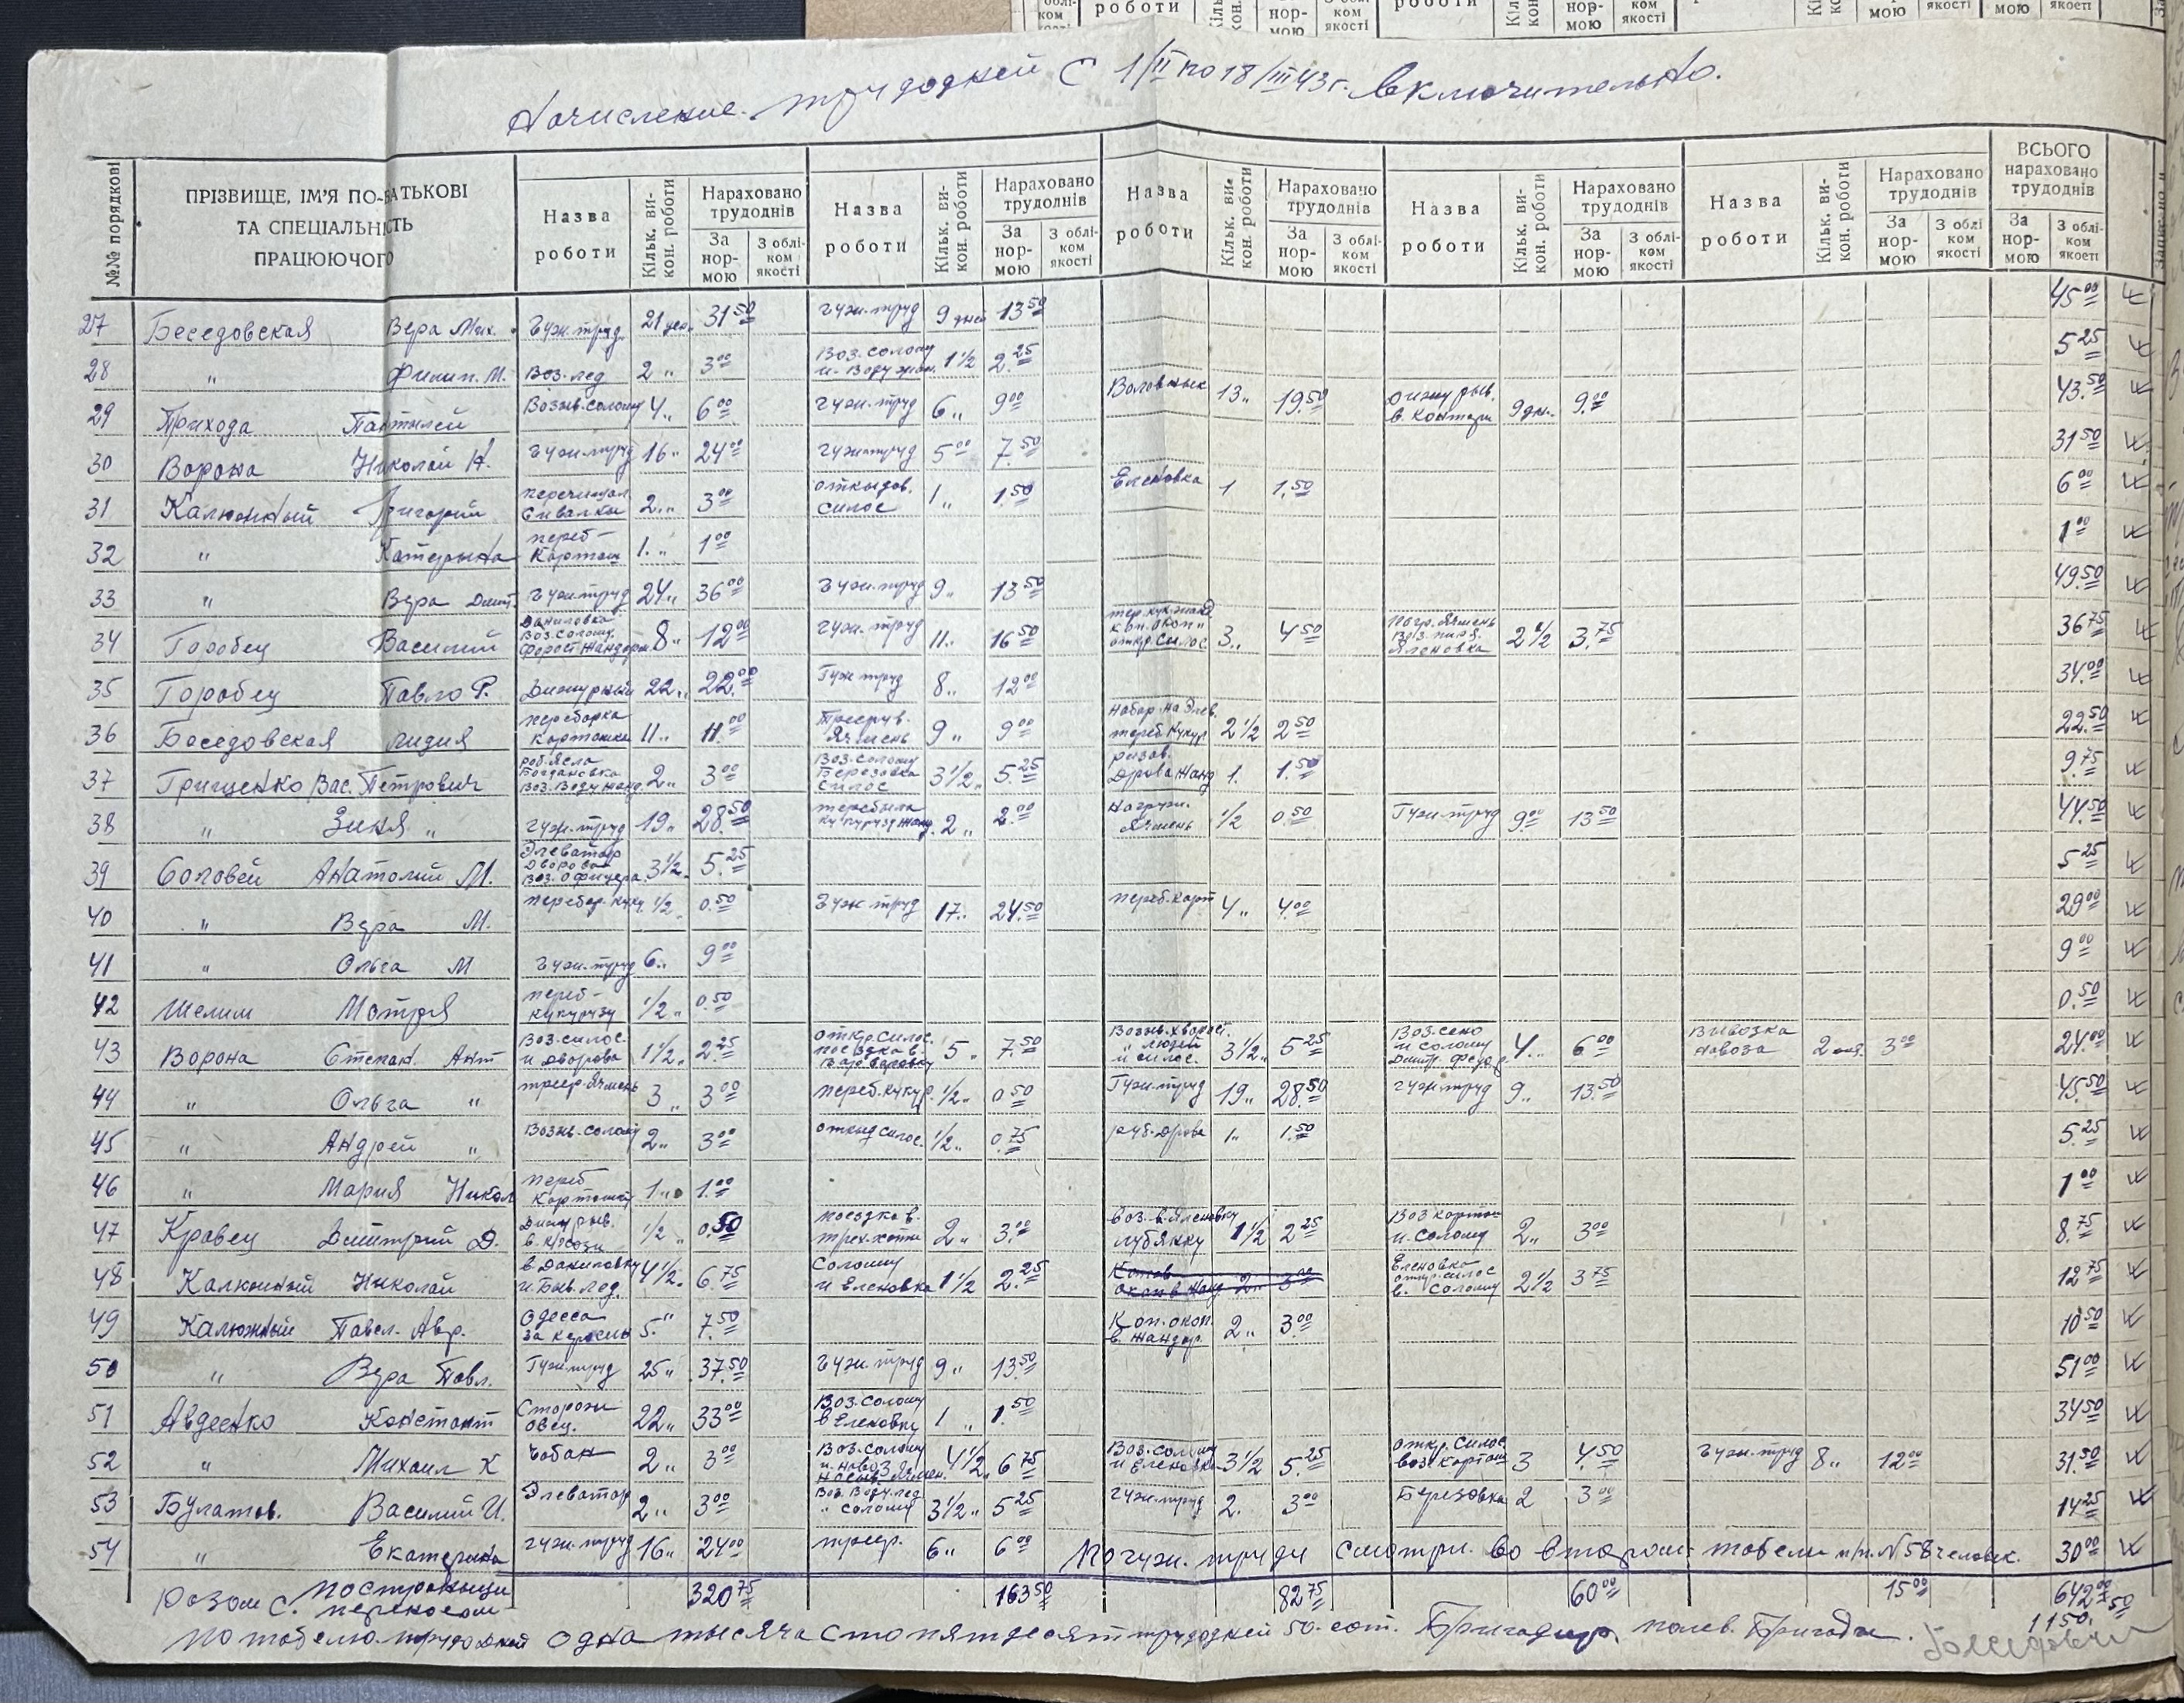 Начисление трудодней с 1/II по 18/III 43г. включительно.
№№ порядкові
ПРІЗВИЩЕ, ІМ'Я ПО-БАТЬКОВІ ТА СПЕЦІАЛЬНІСТЬ ПРАЦЮЮЧОГО
Назва роботи Кільк. ви-кон. роботи Нараховано трудоднів За нор-мою З облі-ком якості
Назва роботи Кільк. ви-кон. роботи Нараховано трудоднів За нор-мою З облі-ком якості
Назва роботи Кільк. ви-кон. роботи Нараховано трудоднів За нор-мою З облі-ком якості
Назва роботи Кільк. ви-кон. роботи Нараховано трудоднів За нор-мою З облі-ком якості
Назва роботи Кільк. ви-кон. роботи Нараховано трудоднів За нор-мою З облі ком якості
ВСЬОГО нараховано трудоднів За нор-мою З облі-ком якості
27 Беседовская Вера Мих. Гуж. труд 21 ден. 31 50 гуж. труд 9 дней 13 50 45 00
28 " Филип. М. Воз. лед 2 " 3 00 Воз. солому и воду 1 1/2 2 25 5 25
29 Прихода Пантилей Возив. солому 4 " 6 00 гуж. труд 6 " 9 00 Воловнык 13 " 19 50 дижурыв. в. Контори 9 дн. 9 00 43 50
30 Ворона Николай А. гуж. труд 16 " 24 00 гуж. труд 5 00 7 50 31 50
31 Калюжный Григорий 2 " 3 00 откыдов. силос 1 " 1 50 Еленовка 1 1,50 6 00
32 " Катерына переб- Картош 1 " 1 00 1 00
33 " Вера Дмит. гуж. труд 24 " 36 00 гуж. труд 9 " 13 50 49 50
34 Горобец Василий Даниловка Воз. солому 8 " 12 00 гуж. труд 11 " 16 50 коп. окоп " откр. силос 3 " 4 50 погр. Ячмень Яленовка 2 1/2 3 75 36 75
35 Горобец Павло Р. Дижурный 22 " 22 00 Гуж труд 8 " 12 00 34 00
36 Беседовская Лидия переборка картошки 11 " 11 00 Триерув. Ячмень 9 " 9 00 Набор. на Элев. переб. Кукур 2 1/2 2 50 22 50
37 Грищенко Вас. Петрович роб. Ясла Богдановка Воз. Воду жанд. 2 " 3 00 Воз. солому Березовка силос 3 1/2 " 5 25 Дрова жанд 1. 1 50 9 75
38 " Зина " гуж. труд 19 " 28 50 перебыла кукурузу жанд. 2 " 2 00 Нагруж. Ячмень 1/2 0 50 Гуж. труд 9 00 13 50 44 50
39 Соловей Анатолий М. Элеватор Дворовая Воз. офицера 3 1/2 " 5 25 5 25
40 " Вера М. перебор. куку 1/2 " 0 50 Гуж труд 17 " 24 50 переб. карт 4 " 4 00 29 00
41 " Ольга М гуж. труд 6 " 9 00 9 00
42 Шелим Мотря переб- кукурузу 1/2 " 0 50 0 50
43 Ворона Степан. Ант Воз. силос. и дворова 1 1/2 " 2 25 откр. силос. поездка в. Варваровку 5 " 7 50 Возыв. хворост. " людей и силос. 3 1/2 " 5 25 Воз. сено и солому 4 " 6 00 Вывозка навоза 2 3 00 24 00
44 " Ольга " триер. Ячмень 3 " 3 00 переб. кукур. 1/2 " 0 50 Гуж. труд 19 " 28 50 гуж. труд 9 " 13 50 45 50
45 " Андрей " Возыв. солому 2 " 3 00 откыд силос. 1/2 " 0 75 руб. дрова 1 " 1 50 5 25
46 " Мария Никол переб Картошку 1 " 1 00 1 00
47 Кравец Дмитрий Д. Дижурыв. 1/2 " 0 50 поездка в. 2 " 3 00 воз. в Яленовку лубянку 1 1/2 2 25 Воз картош и. солому 2 " 3 00 8 75
48 Калюжный Николай в Даниловку и. Быв. лед. 4 1/2 " 6 75 Солому и Еленовка 1 1/2 2 25 Копав окоп в жанд 2 " 3 00 Еленовка откр. силос в. солому 2 1/2 3 75 12 75
49 Калюжный Павел. Авр. Одесса за керосин 5 " 7 50 Коп. окоп. в. жандар. 2 " 3 00 10 50
50 " Вера Павл. Гуж. труд 25 " 37 50 гуж. труд 9 " 13 50 51 00
51 Авдеенко Констант Сторож овец. 22 " 33 00 Воз. солому в Еленовку 1 " 1 50 34 50
52 " Михаил К Чобан 2 " 3 00 Воз. солому и. навоз 4 1/2 " 6 75 Воз. солому и Еленовка 3 1/2 5 25 откр. силос воз. Картош 3 4 50 гуж. труд 8 " 12 00 31 50
53 Булатов. Василий И. Элеватор 2 " 3 00 Воз. Воду. лед " солому 3 1/2 " 5 25 гуж. труд 2. 3 00 Березовка 2 3 00 14 25
54 " Екатерина гуж. труд 16 " 24 00 триер. 6 " 6 00 По гуж. труду смотри. во втором табели п/п. № 58 человек. 30 00
Разом с. построныци переносом 320 75 163 50 82 75 60 00 15 00 642 00
1150. 50
По табелю трудодней одна тысяча сто пятдесят трудодней 50. сот. Бригадир. полев. Бригады. Беседовск